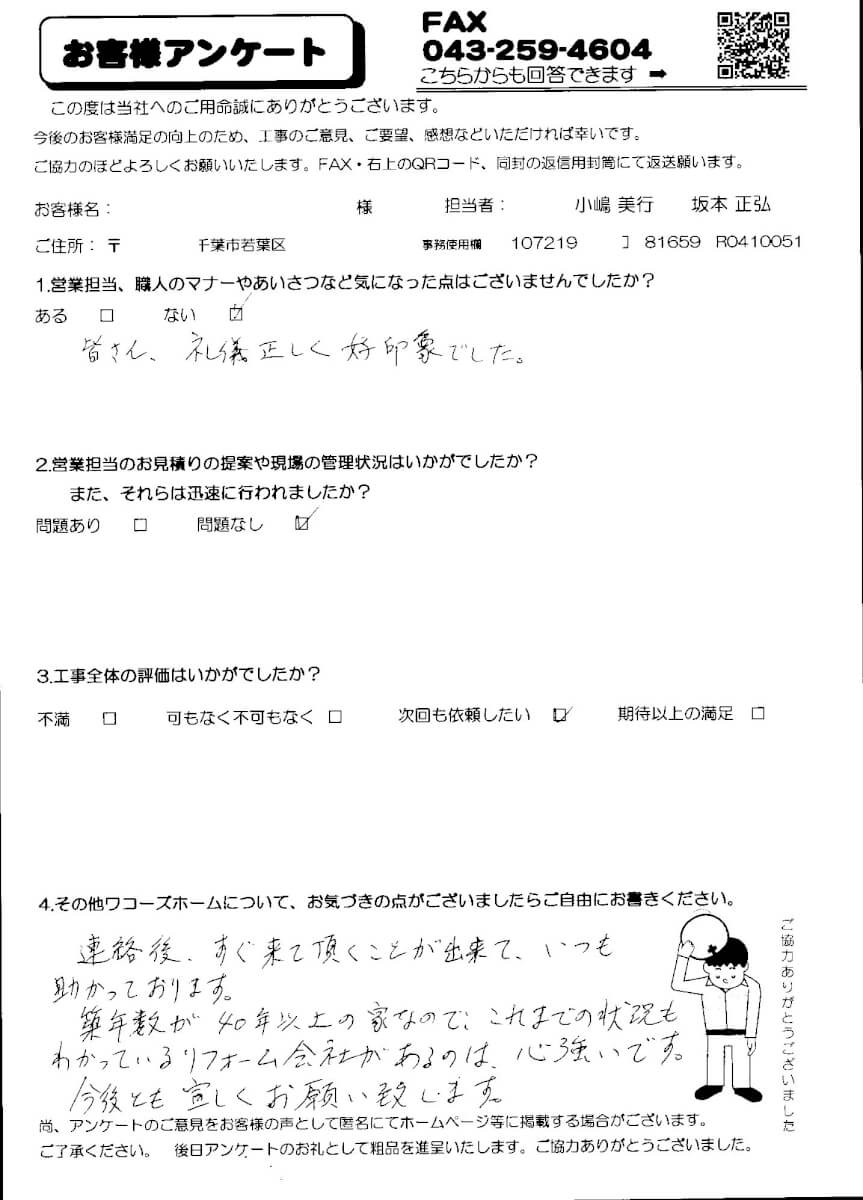 お客様アンケート
FAX
043-259-4604
こちらからも回答できます ➡
この度は当社へのご用命誠にありがとうございます。
今後のお客様満足の向上のため、工事のご意見、ご要望、感想などいただければ幸いです。
ご協力のほどよろしくお願いいたします。FAX・右上のQRコード、同封の返信用封筒にて返送願います。
お客様名： 様 担当者： 小嶋 美行 坂本 正弘
ご住所：〒 千葉市若葉区 事務使用欄 107219 81659 R0410051
1.営業担当、職人のマナーやあいさつなど気になった点はございませんでしたか？
ある □ ない ☑
皆さん、礼儀正しく好印象でした。
2.営業担当のお見積りの提案や現場の管理状況はいかがでしたか？
また、それらは迅速に行われましたか？
問題あり □ 問題なし ☑
3.工事全体の評価はいかがでしたか？
不満 □ 可もなく不可もなく □ 次回も依頼したい ☑ 期待以上の満足 □
4.その他ワコーズホームについて、お気づきの点がございましたらご自由にお書きください。
連絡後、すぐ来て頂くことが出来て、いつも
助かっております。
築年数が40年以上の家なので、これまでの状況も
わかっているリフォーム会社があるのは、心強いです。
今後とも宜しくお願い致します。
ご協力ありがとうございました
尚、アンケートのご意見をお客様の声として匿名にてホームページ等に掲載する場合がございます。
ご了承ください。 後日アンケートのお礼として粗品を進呈いたします。ご協力ありがとうございました。